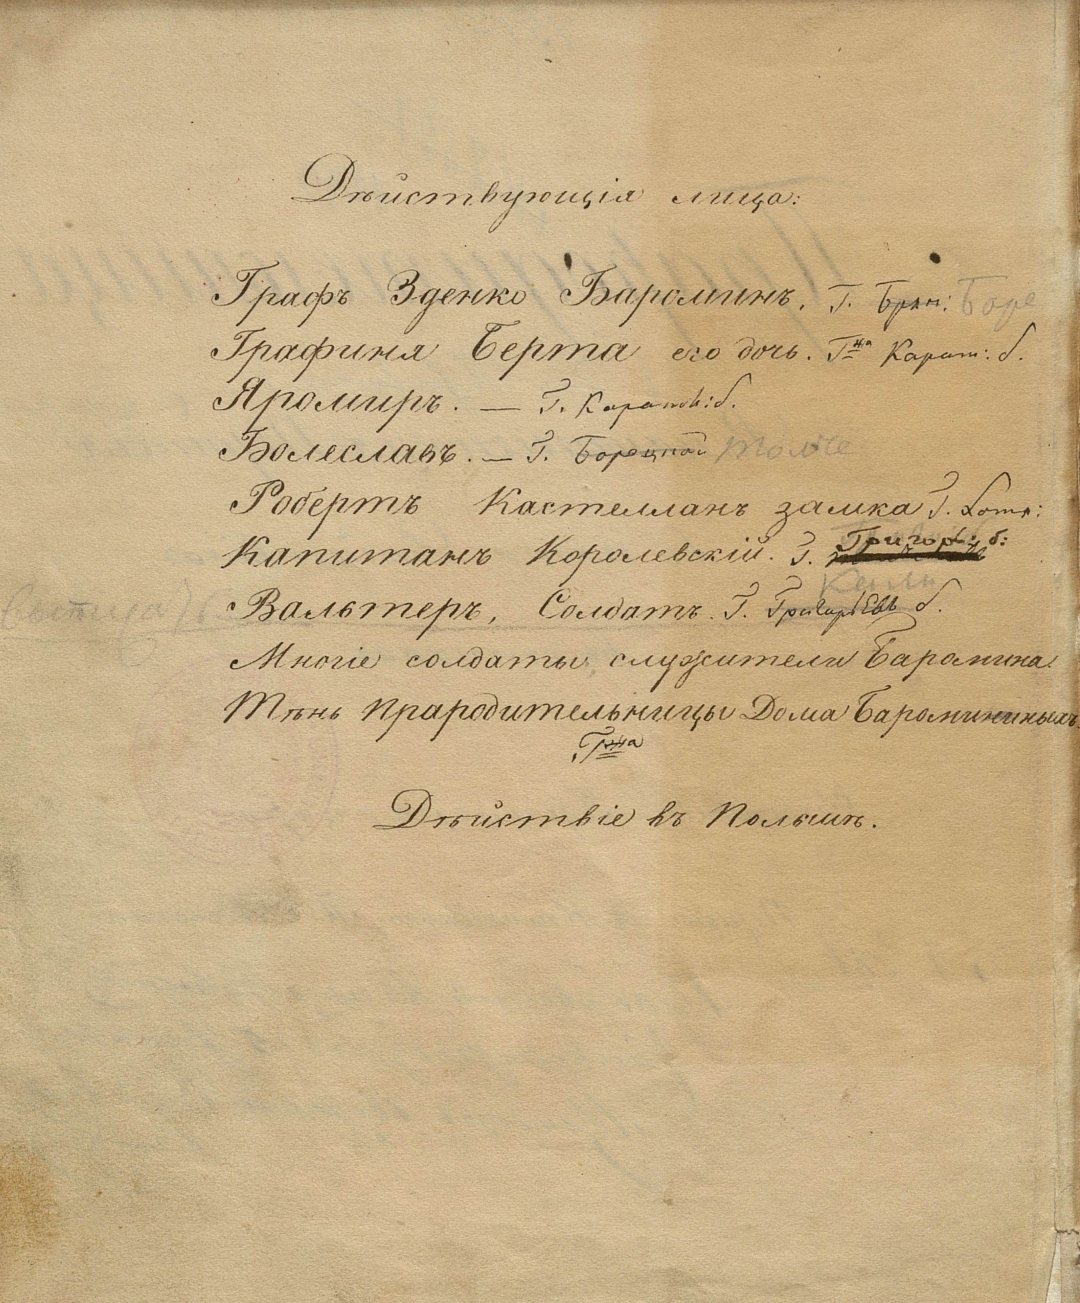 Дѣйствующія лица:
Графъ Зденко Бароминъ. Г. Брян: Боре
Графиня Берта его дочь. Г-жа Карат: б.
Яромиръ. — Г. Каратов: б.
Болеславъ. — Г. Борецкой Толче
Робертъ Кастелланъ замка Г.
Капитанъ Королевскій. Г. Григор: б:
Вальтеръ, Солдатъ. Г. Григорьевъ б.
Многіе солдаты, служители Баромина.
Тѣнь Прародительницы Дома Бароминыхъ
Г-жа
Дѣйствіе въ Польшѣ.